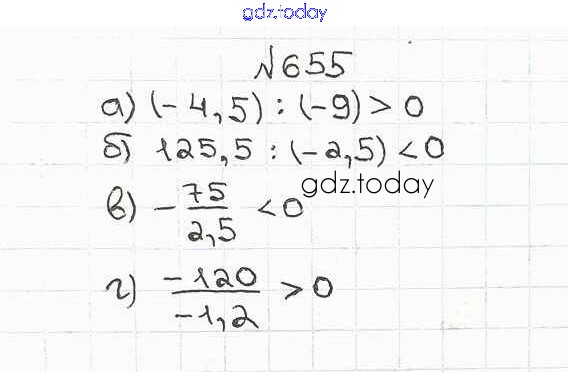 gdz.today
№655
а) (-4,5) : (-9) > 0
б) 125,5 : (-2,5) < 0
gdz.today
в) - 75/2,5 < 0
г) -120/-1,2 > 0